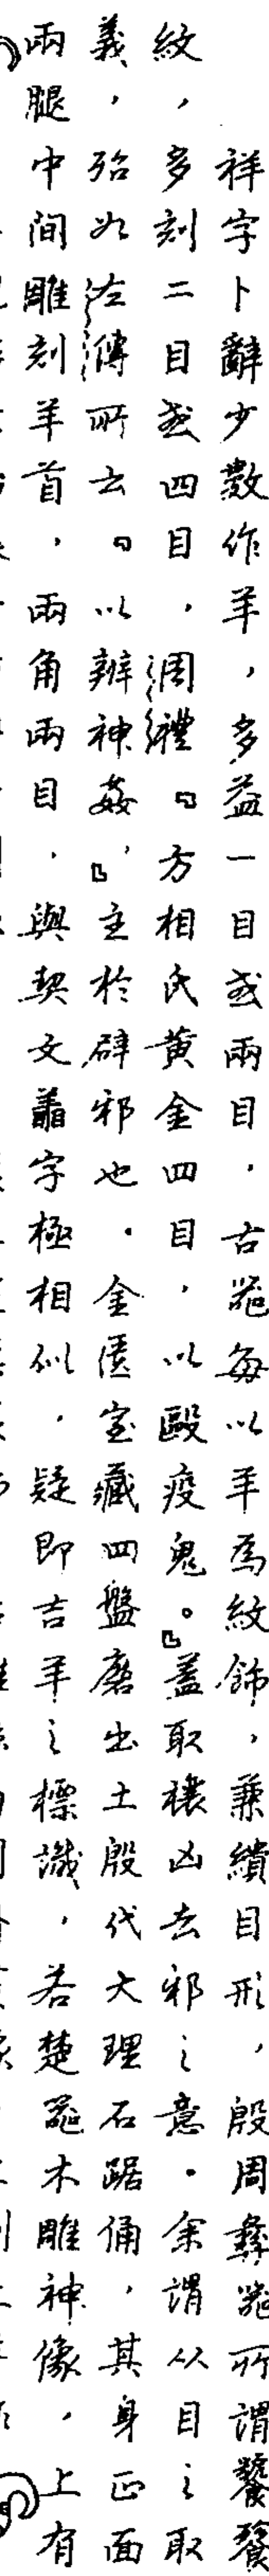 祥字卜辭少數作羊，多益一目或兩目．古器每以羊為紋飾，兼繢目形，殷周彝器所謂饕餮
紋，多刻二目或四目，周禮「方相氏黃金四目，以毆疫鬼。」蓋取禳凶去邪之意．余謂从目之取
義，殆如左傳所云「以辨神姦」，主於辟邪也．金匱室藏四盤磨出土殷代大理石踞俑，其身正面
兩腿中間雕刻羊首，兩角兩目．與契文字極相似，疑即吉羊之標識，若楚器木雕神像，上有